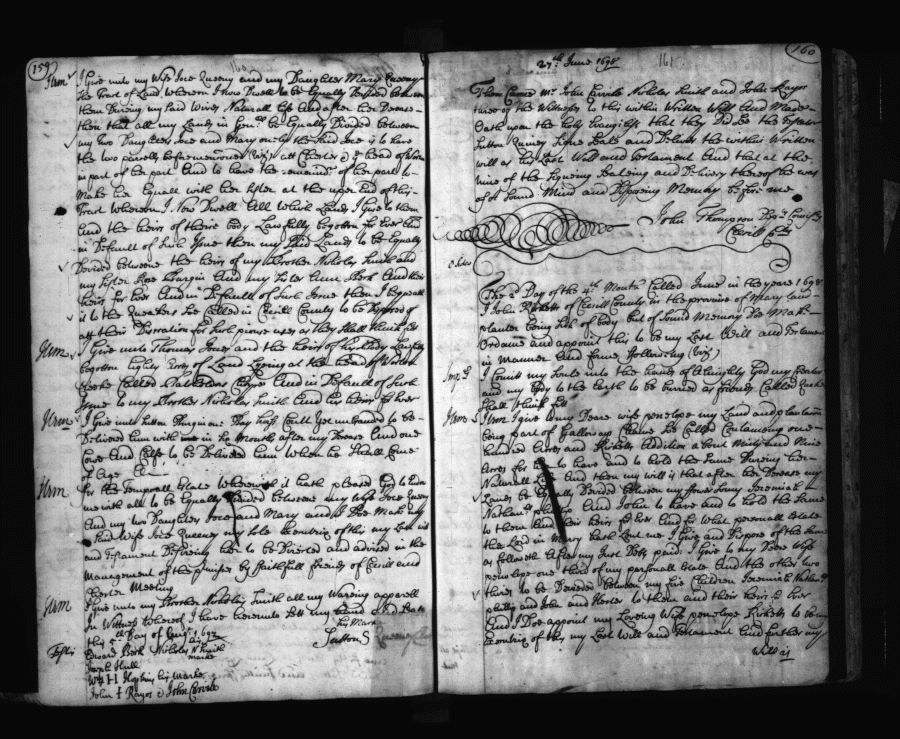 159
Item I Give unto my Wife Joce Queeny and my Daughter Mary Queeny
the Tract of Land whereon I now Dwell to be Equally Possessed between
them During my said Wives Naturall life And after her Decease
then that all my Lands in Genrll be Equally Divided between
my two Daughters Joce and Mary only the said Joce is to have
the two parcels before menconed (Viz) att Chester & head of
in part of her part And to have the remaindr of her part to
make her Equall with her sister at the upper End of this
Tract whereon I Now Dwell All which Lands I Give to them
and the heirs of their body Lawfully begotten for Ever And
in Default of such Issue then my said Lands to be Equally
Devided betweene the heirs of my Brother Nicholas Smith and
my Sister Rose and my Sister Ann Beck And their
heirs for Ever And in Default of such Issue then I bequeath
it to the Quakers soe Called in Cecill County to be Disposed of
att their Discration for such pious uses as they shall think fitt
Item I Give unto Thomas Jones and the heirs of his body Lawfully
begotten Eighty Acres of Land Lyeing at the head of Worton
Creeke Called And in Default of such
Issue to my Brother Nicholas Smith And his heirs for Ever
Item I Give unto my
Delivered him with in six Months after my Decease And one
Cowe And Calfe to be Delivered him When he shall Come
of Age
Item for the Temporall Estate wherewith it hath pleased God to
me with all to be Equally Devided betweene my Wife Joce Queeny
And my two Daughters Joce and Mary and I Doe Make my
said Wife Joce Queeny my sole Executrix of this my Last will
and Testament Desireing her to be Directed and advised in the
Management of the premises by faithfull friends of Cecill and
Chester Meeting
Item I Give unto my Brother Nicholas Smith all my Wareing apparell
In Witness whereof I have hereunto sett my hand and Seale
this Day of 1697 his Mark
Testis Edward Beck Nicholas N Smith Sutton S Queeny
marke
Joseph Hull
Wm H Hopkins his marke
John Rayor John Carvile
160
161
27th June 1698
Then Came Mr John Carvile Nicholas Smith and John Rayor
three of the Witnesses to this within Written Will And Made
Oath upon the holy Evangelist that they Did See the Testator
Sutton Queeny Signe Seale and Deliver the within Written
will as his Last Will and Testament And that at the
time of the Signeing Sealeing and Delivery thereof he was
of Sound Mind and Disposing Memory before me
John Thompson Depty Comissry
Cecill Coty
The 2d Day of the 4th Month Called June in the yeare 1698
I John Ricketts of Cecill County in the province of Mary land
planter being Sick of body but of Sound Memory Doe Make
Ordaine and appoint this to be my Last Will and Testament
in Manner and forme following (Viz)
Imps I Comitt my Soule into the hands of Almighty God my Creator
and my body to the Earth to be burried as friends Called Quakers
shall think fitt
Item I give to my Deare wife penelope my Land and plantacon
being part of Galloway soe Called Containing one
hundred Acres and Ricketts Addition about Ninty and Nine
Acres for to have and to hold the same Dureing her
Naturall Life And then my will is that after her Decease my
Lands be Equally Devided between my foure Sonns Jeremiah
Nathanl phillip And John to have and to hold the Same
to them And their heirs for Ever And for What personall Estate
the Lord in Mercy hath Lent me I Give and Dispose of the Same
as followeth After my Just Debts paid I give to my Deare Wife
penelope one third of my personall Estate And the other two
thirds to be Devided between my five Children Jeremiah Nathanl
phillip and John and Hester to them and their heirs for Ever
And I Doe appoint my Loveing Wife penelope Ricketts to be my
Executrix of this my Last Will and Testament And further my
Will is